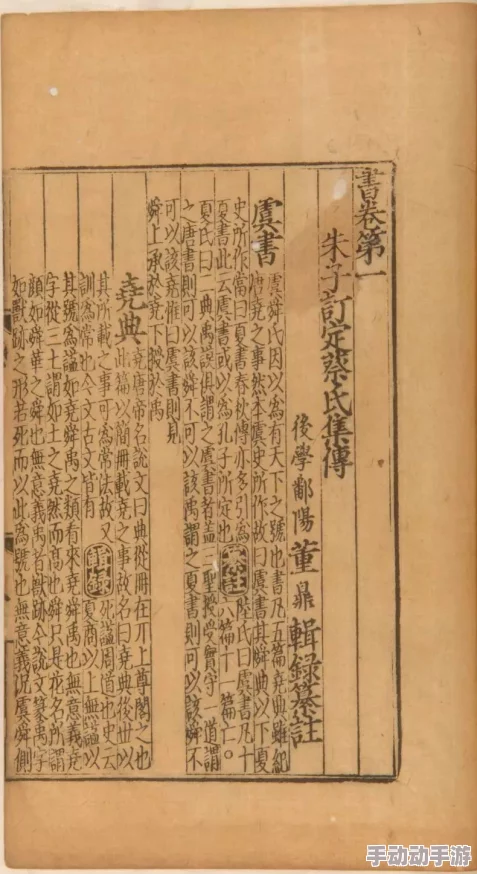 書卷第一
朱子訂定蔡氏集傳
後學鄱陽董鼎輯錄纂註
虞書
虞舜氏因以爲有天下之號也書凡五篇堯典雖紀
唐堯之事然本虞史所作故曰虞書其舜典以下夏
史所作當曰夏書春秋傳亦多引爲
夏書此云虞書或以爲孔子所定也
纂註
陸氏曰虞書凡十
六篇十一篇亡○
夏氏曰二典禹謨俱謂之虞書者蓋三聖授受實守一道謂
之唐書則可以該舜不可以該禹謂之夏書則可以該舜不
可以該堯惟曰虞書則見
舜上承於堯下授於禹
堯典
堯唐帝名說文曰典從冊在丌上尊閣之也
此篇以簡冊載堯之事故名曰堯典後世以
其所載之事可爲常法故又
訓爲常也今文古文皆有
輯錄
死謚周道也史云
夏商以上無謚以
其號爲謚如堯舜禹之類看來堯舜禹也無意義堯
字從三土謂如土之堯然而高也舜只是花名所謂
顏如舜華之舜也無意義禹者獸跡今說文篆禹字
如獸跡之形若死而以此爲號也無意義況虞舜側
手动动手游